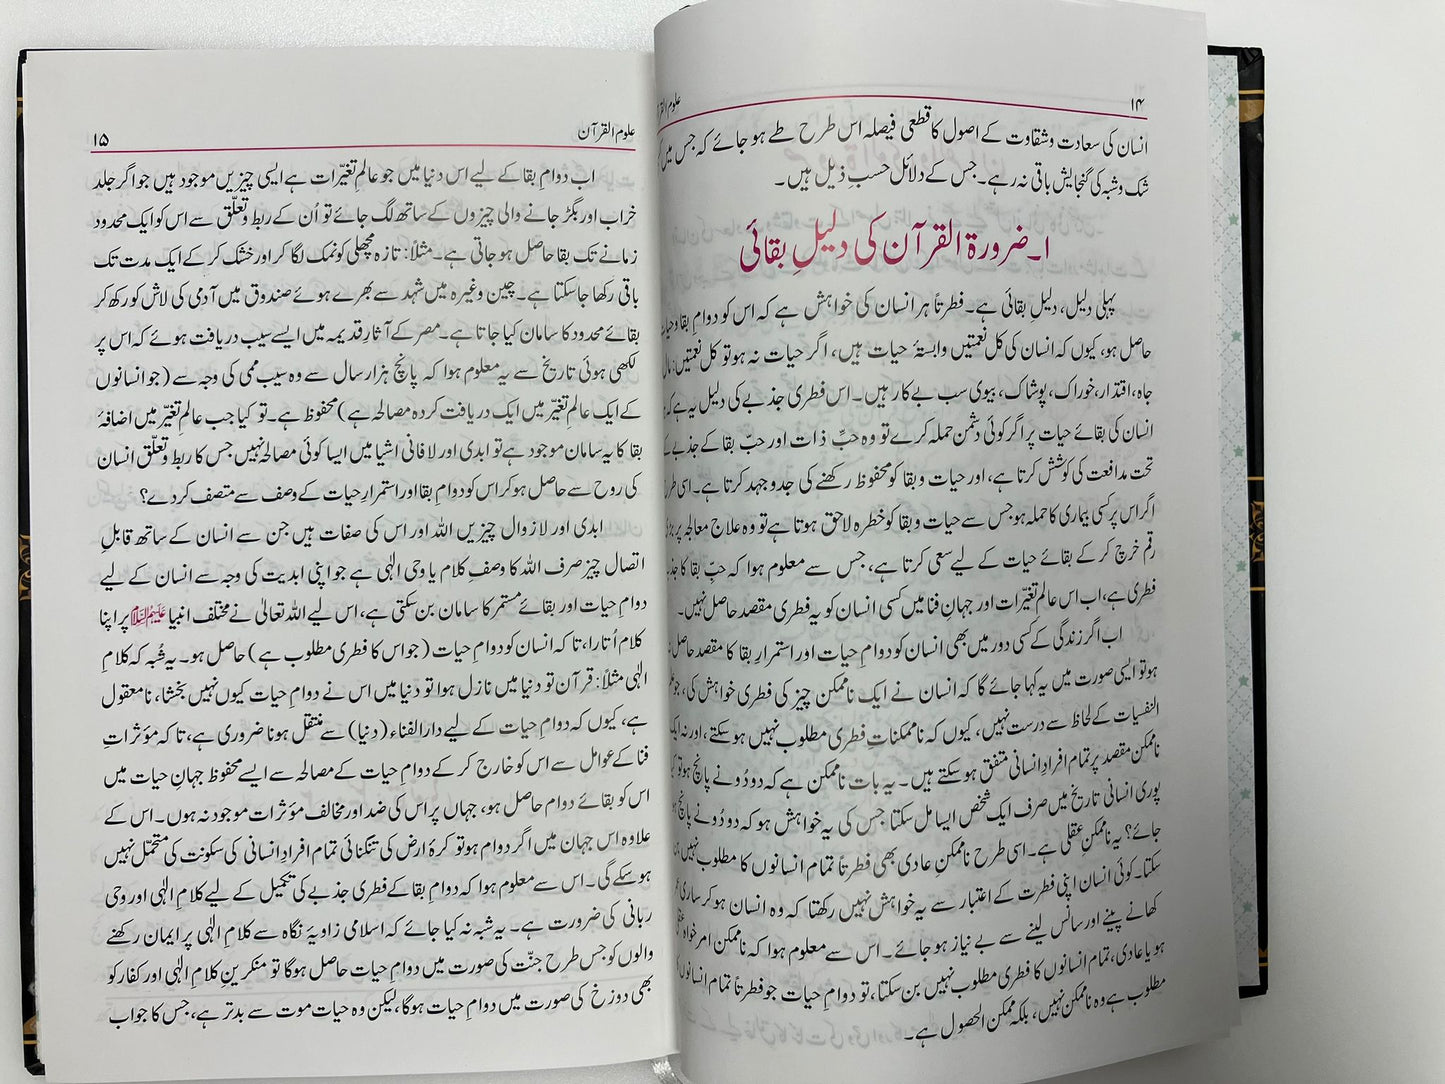 ۱۴
علوم القر
انسان کی سعادت و شقاوت کے اصول کا قطعی فیصلہ اس طرح طے ہو جائے کہ جس میں
شک و شبہ کی گنجایش باقی نہ رہے۔ جس کے دلائل حسبِ ذیل ہیں۔
۱۔ ضرورۃ القرآن کی دلیلِ بقائی
پہلی دلیل، دلیلِ بقائی ہے۔ فطرتاً ہر انسان کی خواہش ہے کہ اس کو دوامِ بقا وحیات
حاصل ہو، کیوں کہ انسان کی کل نعمتیں وابستۂ حیات ہیں، اگر حیات نہ ہو تو کل نعمتیں: مال
جاہ، اقتدار، خوراک، پوشاک، بیوی سب بے کار ہیں۔ اس فطری جذبے کی دلیل یہ ہے کہ
انسان کی بقائے حیات پر اگر کوئی دشمن حملہ کرے تو وہ حبِّ ذات اور حبّ بقا کے جذبے کے
تحت مدافعت کی کوشش کرتا ہے، اور حیات و بقا کو محفوظ رکھنے کی جدوجہد کرتا ہے۔ اسی طر
اگر اس پر کسی بیماری کا حملہ ہو جس سے حیات و بقا کو خطرہ لاحق ہوتا ہے تو وہ علاج معالجہ پر
رقم خرچ کر کے بقائے حیات کے لیے سعی کرتا ہے، جس سے معلوم ہوا کہ حبِّ بقا کا
فطری ہے، اب اس عالمِ تغیّرات اور جہانِ فنا میں کسی انسان کو یہ فطری مقصد حاصل نہیں۔
اب اگر زندگی کے کسی دور میں بھی انسان کو دوامِ حیات اور استمرارِ بقا کا مقصد حاصل
ہو تو ایسی صورت میں یہ کہا جائے گا کہ انسان نے ایک ناممکن چیز کی فطری خواہش کی، جو
النفسیات کے لحاظ سے درست نہیں، کیوں کہ ناممکناتِ فطری مطلوب نہیں ہو سکتے، اور نہ ایک
ناممکن مقصد پر تمام افرادِ انسانی متفق ہو سکتے ہیں۔ یہ بات ناممکن ہے کہ دو دُونے پانچ ہو تو
پوری انسانی تاریخ میں صرف ایک شخص ایسا مل سکتا جس کی یہ خواہش ہو کہ دو دُونے پانچ
جائے؟ یہ ناممکنِ عقلی ہے۔ اسی طرح ناممکنِ عادی بھی فطرتاً تمام انسانوں کا مطلوب نہیں
سکتا۔ کوئی انسان اپنی فطرت کے اعتبار سے یہ خواہش نہیں رکھتا کہ وہ انسان ہو کر ساری
کھانے پینے اور سانس لینے سے بے نیاز ہو جائے۔ اس سے معلوم ہوا کہ ناممکن امر خواہ
ہو یا عادی، تمام انسانوں کا فطری مطلوب نہیں بن سکتا، تو دوامِ حیات جو فطرتاً تمام انسانوں
مطلوب ہے وہ ناممکن نہیں، بلکہ ممکن الحصول ہے۔
علوم القرآن
۱۵
اب دوامِ بقا کے لیے اس دنیا میں جو عالمِ تغیّرات ہے ایسی چیزیں موجود ہیں جو اگر جلد
خراب اور بگڑ جانے والی چیزوں کے ساتھ لگ جائے تو اُن کے ربط و تعلّق سے اس کو ایک محدود
زمانے تک بقا حاصل ہو جاتی ہے۔ مثلاً: تازہ مچھلی کو نمک لگا کر اور خشک کر کے ایک مدت تک
باقی رکھا جا سکتا ہے۔ چین وغیرہ میں شہد سے بھرے ہوئے صندوق میں آدمی کی لاش کو رکھ کر
بقائے محدود کا سامان کیا جاتا ہے۔ مصر کے آثارِ قدیمہ میں ایسے سیب دریافت ہوئے کہ اس پر
لکھی ہوئی تاریخ سے یہ معلوم ہوا کہ پانچ ہزار سال سے وہ سیب ممی کی وجہ سے (جو انسانوں
کے ایک عالمِ تغیّر میں ایک دریافت کردہ مصالحہ ہے) محفوظ ہے۔ تو کیا جب عالمِ تغیّر میں اضافۂ
بقا کا یہ سامان موجود ہے تو ابدی اور لافانی اشیا میں ایسا کوئی مصالحہ نہیں جس کا ربط و تعلّق انسان
کی روح سے حاصل ہو کر اس کو دوامِ بقا اور استمرارِ حیات کے وصف سے متصف کر دے؟
ابدی اور لازوال چیزیں اللہ اور اس کی صفات ہیں جن سے انسان کے ساتھ قابلِ
اتصال چیز صرف اللہ کا وصفِ کلام یا وحی الٰہی ہے جو اپنی ابدیت کی وجہ سے انسان کے لیے
دوامِ حیات اور بقائے مستمر کا سامان بن سکتی ہے، اس لیے اللہ تعالیٰ نے مختلف انبیا علیہم السلام پر اپنا
کلام اُتارا، تاکہ انسان کو دوامِ حیات (جو اس کا فطری مطلوب ہے) حاصل ہو۔ یہ شُبہ کہ کلامِ
الٰہی مثلاً: قرآن تو دنیا میں نازل ہوا تو دنیا میں اس نے دوامِ حیات کیوں نہیں بخشا، نامعقول
ہے، کیوں کہ دوامِ حیات کے لیے دارالفناء (دنیا) سے منتقل ہونا ضروری ہے، تاکہ مؤثراتِ
فنا کے عوامل سے اس کو خارج کر کے دوامِ حیات کے مصالحہ سے ایسے محفوظ جہانِ حیات میں
اس کو بقائے دوام حاصل ہو، جہاں پر اس کی ضد اور مخالف مؤثرات موجود نہ ہوں۔ اس کے
علاوہ اس جہان میں اگر دوام ہو تو کرۂ ارض کی تنگنائی تمام افرادِ انسانی کی سکونت کی متحمّل نہیں
ہو سکے گی۔ اس سے معلوم ہوا کہ دوامِ بقا کے فطری جذبے کی تکمیل کے لیے کلامِ الٰہی اور وحی
ربانی کی ضرورت ہے۔ یہ شبہ نہ کیا جائے کہ اسلامی زاویۂ نگاہ سے کلامِ الٰہی پر ایمان رکھنے
والوں کو جس طرح جنّت کی صورت میں دوامِ حیات حاصل ہوگا تو منکرینِ کلامِ الٰہی اور کفار کو
بھی دوزخ کی صورت میں دوامِ حیات ہوگا، لیکن وہ حیات موت سے بدتر ہے، جس کا جواب